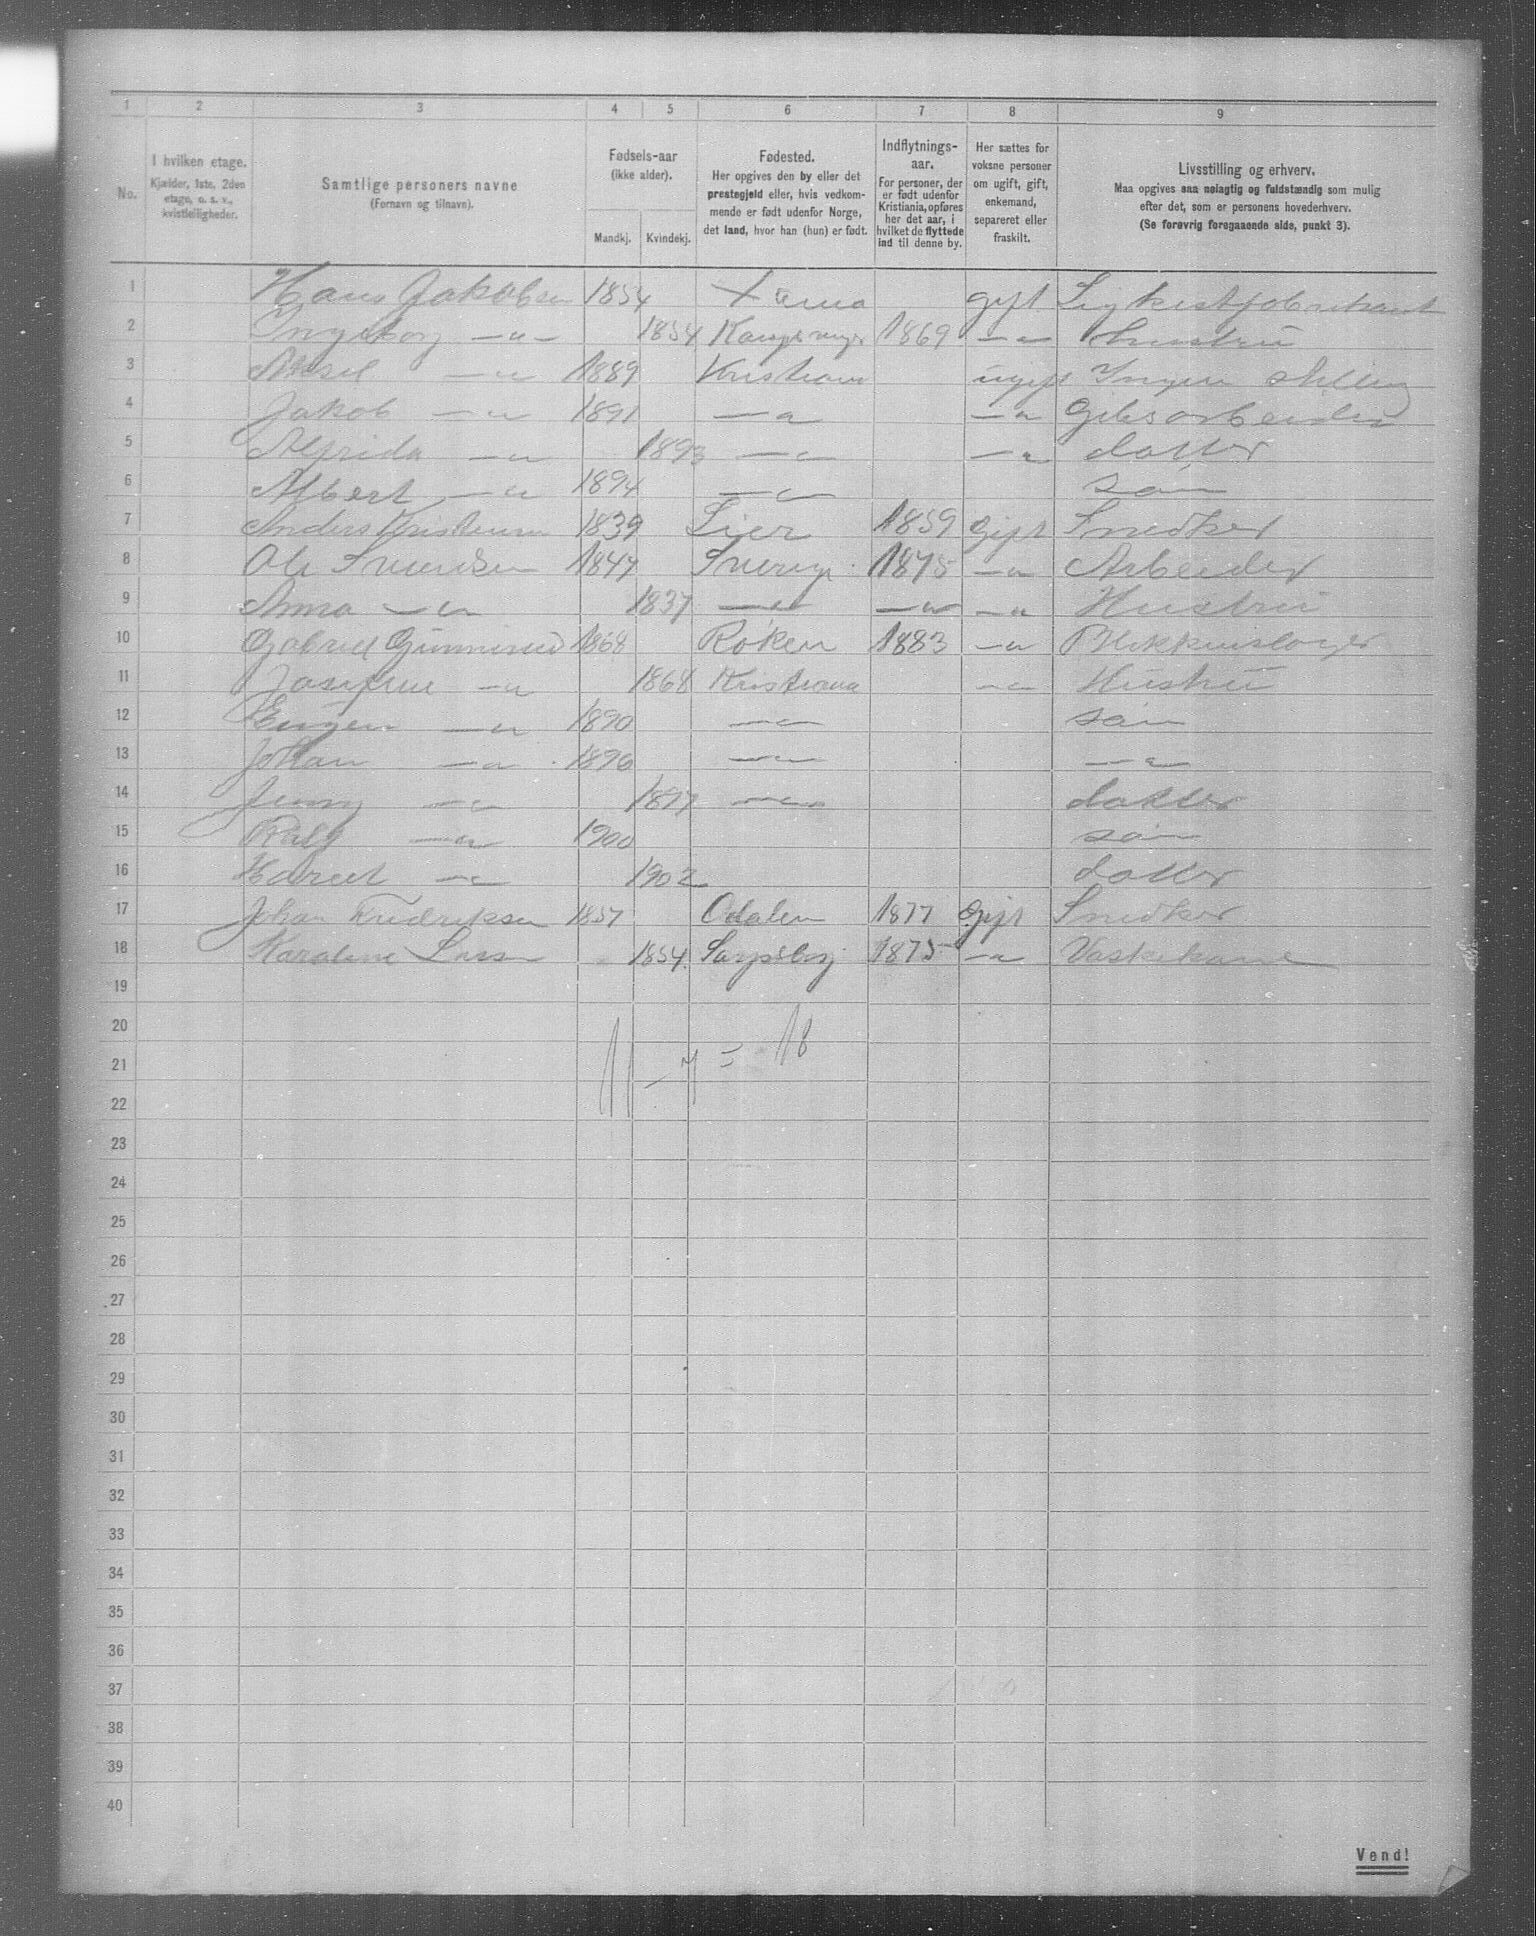 1 2 3 4 5 6 7 8 9
No. I hvilken etage. Kjælder, 1ste, 2den etage, o. s. v., kvistleiligheder. Samtlige personers navne (Fornavn og tilnavn). Fødsels-aar (ikke alder). Mandkj. Kvindekj. Fødested. Her opgives den by eller det prestegjeld eller, hvis vedkommende er født udenfor Norge, det land, hvor han (hun) er født. Indflytnings-aar. For personer, der er født udenfor Kristiania, opføres her det aar, i hvilket de flyttede ind til denne by. Her sættes for voksne personer om ugift, gift, enkemand, separeret eller fraskilt. Livsstilling og erhverv. Maa opgives saa nøiagtig og fuldstændig som mulig efter det, som er personens hovederhverv. (Se forøvrig foregaaende side, punkt 3).
1 Hans Jakobsen 1854 gift Ligkistfabrikant
2 Ingeborg —"— 1854 Kongsvinger 1869 —"— Hustru
3 Aksel —"— 1889 Kristiania ugift Ingen stilling
4 Jakob —"— 1891 —"— —"— Gibsarbeider
5 Alfrida —"— 1893 —"— —"— datter
6 Albert —"— 1894 —"— søn
7 Anders Kristensen 1839 Lier 1859 Gift Snedker
8 Ole Svendsen 1847 Sverige 1875 —"— Arbeider
9 Anna —"— 1837 —"— —"— —"— Hustru
10 Gabriel Gunnerud 1868 Røken 1883 —"— Blikkenslager
11 Josefine —"— 1868 Kristiania —"— Hustru
12 Eugen —"— 1890 —"— søn
13 Johan —"— 1896 —"— —"—
14 Jenny —"— 1897 —"— datter
15 —"— 1900 søn
16 —"— 1902 datter
17 Johan Fredriksen 1857 Odalen 1877 Gift Snedker
18 Karoline Larsen 1854 Sarpsborg 1875 —"— Vaskekone
19
20
11 – 7 = 18
21
22
23
24
25
26
27
28
29
30
31
32
33
34
35
36
37
38
39
40
Vend!